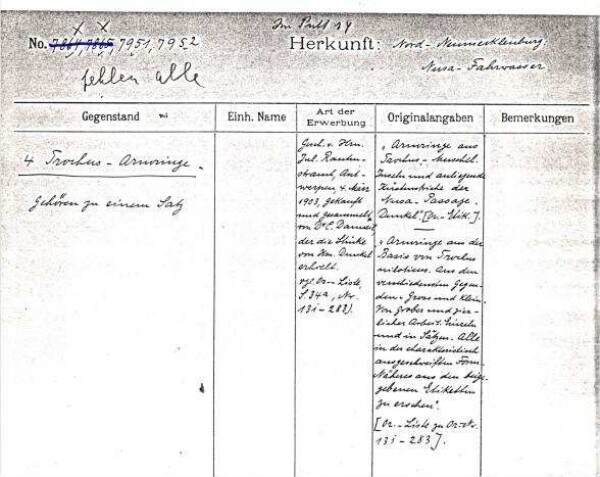 x x
Im Pult 14
No. 7864, 7865, 7951, 7952
Herkunft: Nord-Neumecklenburg.
Nusa-Fahrwasser
fehlen alle
Gegenstand
Einh. Name
Art der Erwerbung
Originalangaben
Bemerkungen
4 Trochus-Armringe.
Gehören zu einem Satz
Gesch. v. Hrn.
Jul. Rauten-
strauch, Ant-
werpen, 4. März
1903, gekauft
und gesammelt
von Dr. E. Damsel,
der die Stücke
von Hrn. Dunkel
erhielt.
vgl. Or-Liste,
S. 34a, Nr.
131-283).
"Armringe aus
Trochus-Muschel.
Inseln und anliegende
Küstenstriche der
Nusa-Passage.
Dunkel" [Or.-Etik.].
"Armringe aus der
Basis von Trochus
niloticus. Aus den
verschiedensten Gegen-
den. Gross und Klein.
Von grober und zier-
licher Arbeit. Einzeln
und in Sätzen. Alle
in der charakteristisch
ausgeschweiften Form.
Näheres aus den beige-
gebenen Etiketten
zu ersehen".
[Or.-Liste zu Or-Nr.
131-283].